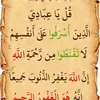 قُلْ يَا عِبَادِيَ
الَّذِينَ أَسْرَفُوا عَلَى أَنْفُسِهِمْ
لَا تَقْنَطُوا مِنْ رَحْمَةِ اللَّهِ
إِنَّ اللَّهَ يَغْفِرُ الذُّنُوبَ جَمِيعًا
إِنَّهُ هُوَ الْغَفُورُ الرَّحِيمُ